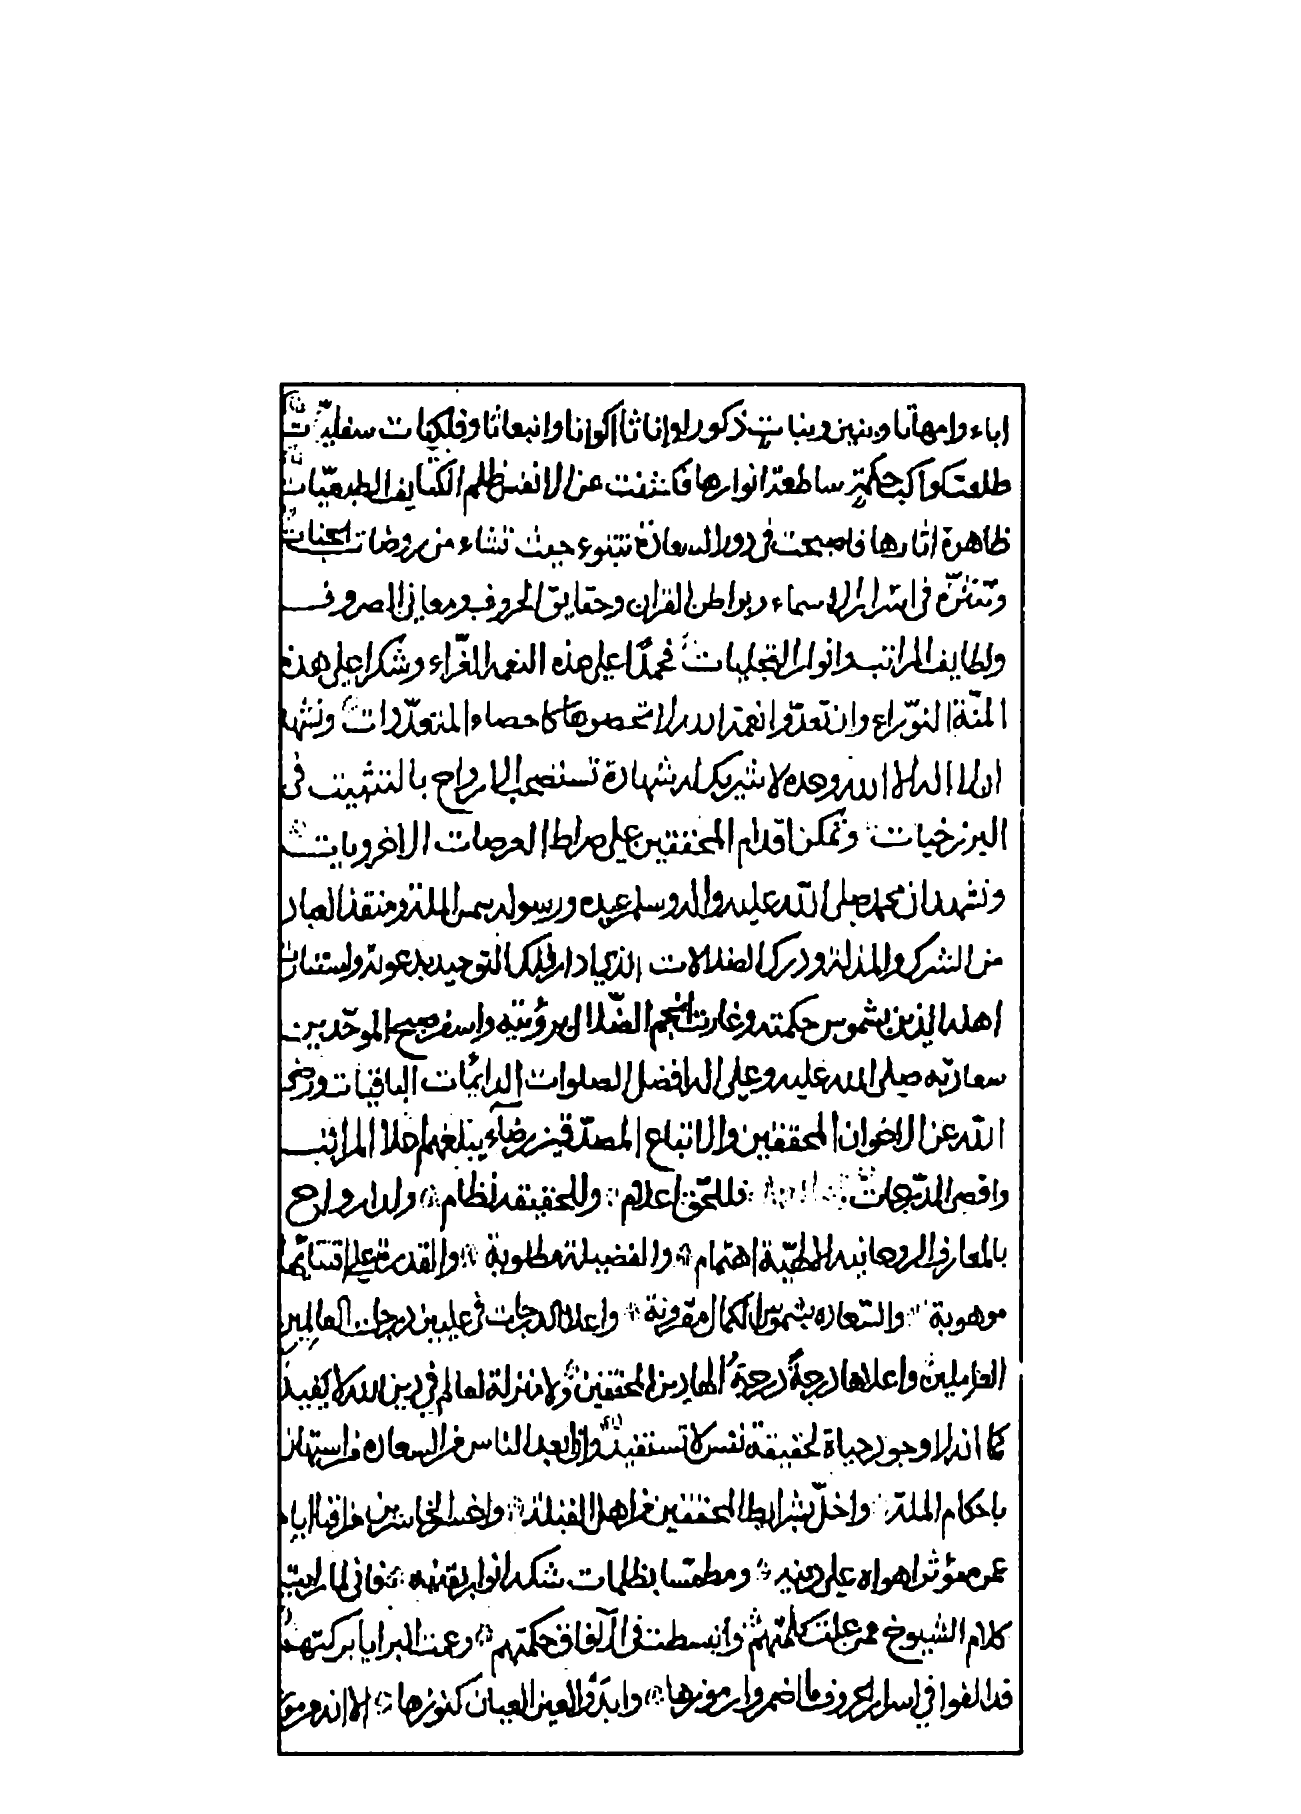 اباء وامهاتا وبنين وبنات ذكورا واناثا اكوانا وانبعاثا وفلكيات سفليات
طلعت كواكب حكمته ساطعة انوارها فكشفت عن الانفس ظلم الكثايف الطبيعيات
ظاهرة اثارها فاصبحت في دور السعادة تتبوء حيث تشاء من روضات الجنات
وتتنزه في اسرار الاسماء وبواطن القران وحقايق الحروف ومعاني الصروف
ولطايف المراتب وانوار التجليات فحمدا على هذه النعمة الغراء وشكرا على هذه
المنة النوراء وان تعدوا نعمة الله لا تحصوها كاحصاء المتعددات ونشهد
ان لا اله الا الله وحده لا شريك له شهادة تستصحب الارواح بالتثبيت في
البرزخيات وتمكن اقدام المحققين على صراط العرصات الاخرويات
ونشهد ان محمد صلى الله عليه واله وسلم عبده ورسوله الملة ومنقذ العباد
من الشرك والمذلة ودرك الضلالات الذي ادار فلك التوحيد بدعوته واستنارت
اهله الذين بشموس حكمته وغارت انجم الضلال برؤيته واسفر صبح الموحدين
سعادته صلى الله عليه وعلى اله افضل الصلوات الدائمات الباقيات ورضي
الله عن الاخوان المحققين والاتباع المصدقين رضاء يبلغهم اعلا المراتب
واقصى الدرجات فللحق اعلام وللحقيقه نظام وللارواح
بالمعارف الروحانيه اهتمام والفضيلة مطلوبة والقدرة على اقتنائها
موهوبة والسعاده بشموس الكمال مقرونة واعلا الدرجات في عليين درجات العالمين
العاملين واعلاها درجة درجة الهادين المحققين ولا منزلة لعالم في دين الله لا يفيد
كما انه لا وجود حياة لحقيقة نفس لا تستفيد وان ابعد الناس من السعاده من استهان
باحكام الملة واخل بشرايط المحققين من اهل القبلة واخسر الخاسرين
عمره مؤثرا هواه على دينه ومطمسا بظلمات شكه انوار يقينه فاني لما رايت
كلام الشيوخ ممن علت كلمتهم وانبسطت في الآفاق حكمتهم وعمت البرايا بركتهم
قد الفوا في اسرار الحروف ما اضمروا رموزها وابدوا لعين العيان كنوزها الا انه